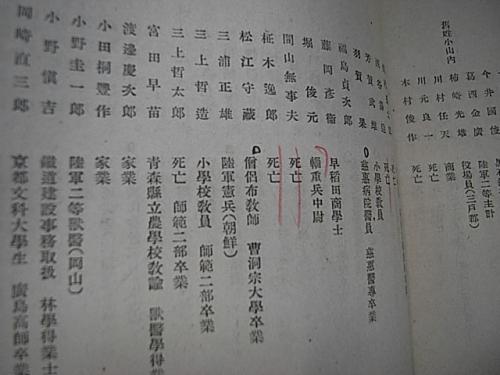 舊姓小山內
葛西金廣 役場員(三戸郡)
柿崎光雄 商業
川村任天 死亡
川元良一
木村俊作
芳賀武雄 小學校敎員
福島貞次郎 慈惠病院醫員 慈惠醫專卒業
藤岡彥衞 早稻田商學士
堀俊元 輜重兵中尉
間山無事夫 死亡
柾木逸郎 死亡
松江守藏 僧侶布敎師 曹洞宗大學卒業
三浦正雄 陸軍憲兵(朝鮮)
三上哲廣 小學校敎員 師範二部卒業
三上哲太郎 死亡 師範二部卒業
宮田早苗 靑森縣立農學校敎諭 獸醫學得業
渡邊慶次郎 家業
小田桐豐作 家業
小野圭一郎 陸軍二等獸醫(岡山)
小野愼吉 鐵道建設事務取扱 林學得業士
岡崎直三郎 京都文科大學生 廣島高師卒業